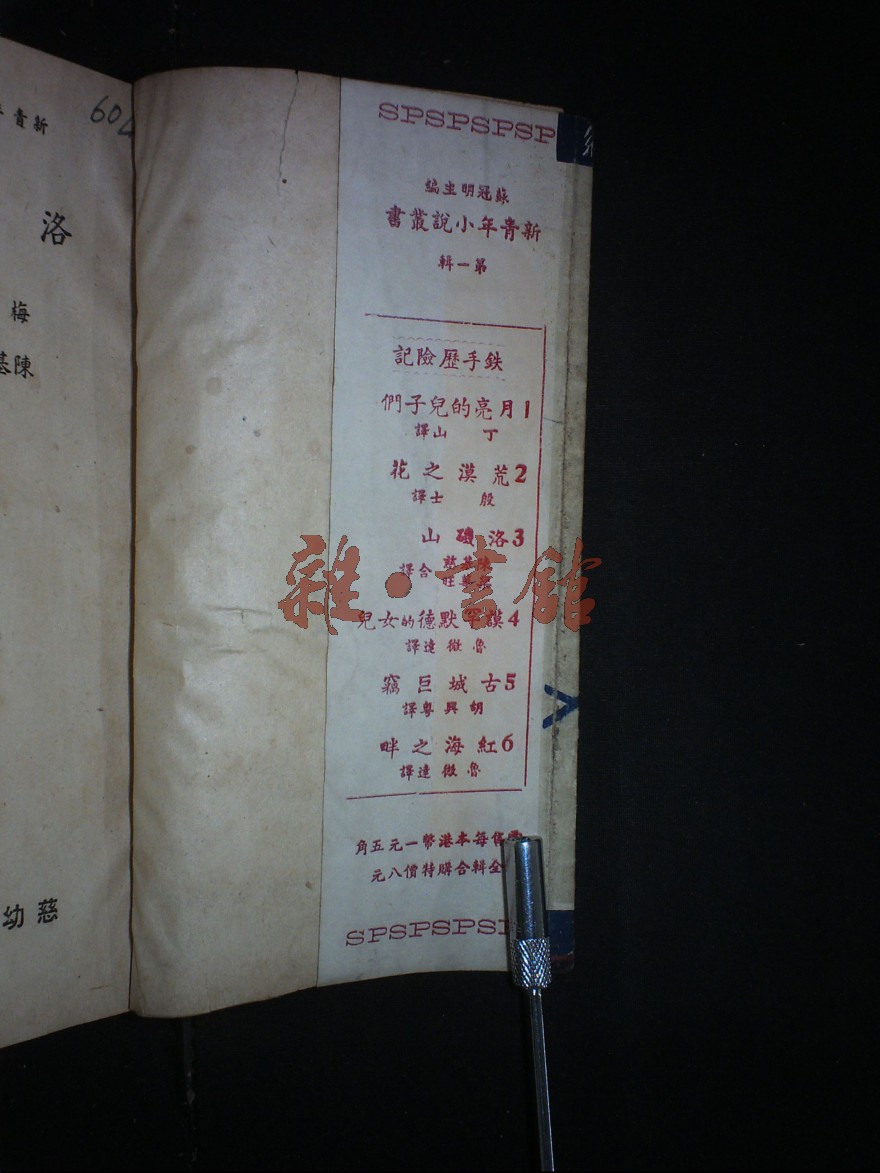 新青
604
洛
梅
陳基
慈幼
SPSPSPSP
蘇冠明主編
新青年小說叢書
第一輯
鉄手歷險記
1月亮的兒子們
丁山譯
2荒漠之花
殷士譯
3洛磯山
合譯
4謨罕默德的女兒
魯微達譯
5古城巨竊
胡興粵譯
6紅海之畔
魯微達譯
售每本港幣一元五角
全輯合購特價八元
SPSPSPS
雜·書館